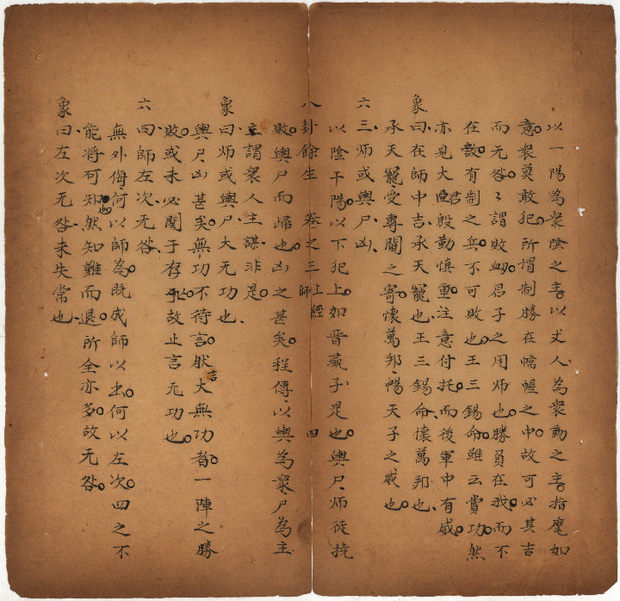 以一陽為衆陰之主以丈人為衆動之主指麾如
意衆莫敢犯所謂制勝在幨幄之中故可必其吉
而无咎々謂敗衂君子之用師也勝負在我而不
在敵有制之兵不可敗也王三錫命雖云賞功然
亦見大君殷勤慎重注意付托而後軍中有威
象曰在師中吉承天寵也王三錫命懷萬邦也
承天寵受專閫之寄懷萬邦暢天子之威也
六三師或輿尸凶
以陰干陽以下犯上如晉彘子是也輿尸師徒撓
八卦餘生 卷之三 上經 師 四
敗輿尸而歸也凶之甚矣程傳以輿為衆尸為主
主謂衆人主謀非是
象曰師或輿尸大无功也
輿尸凶甚矣無功不待言肰言大無功者一陣之勝
敗或未必関于存亡故止言无功也
六四師左次无咎
無外侮何以師為既成師以出何以左次四之不
能將可知也然知難而退所全亦多故无咎
象曰左次无咎未失常也